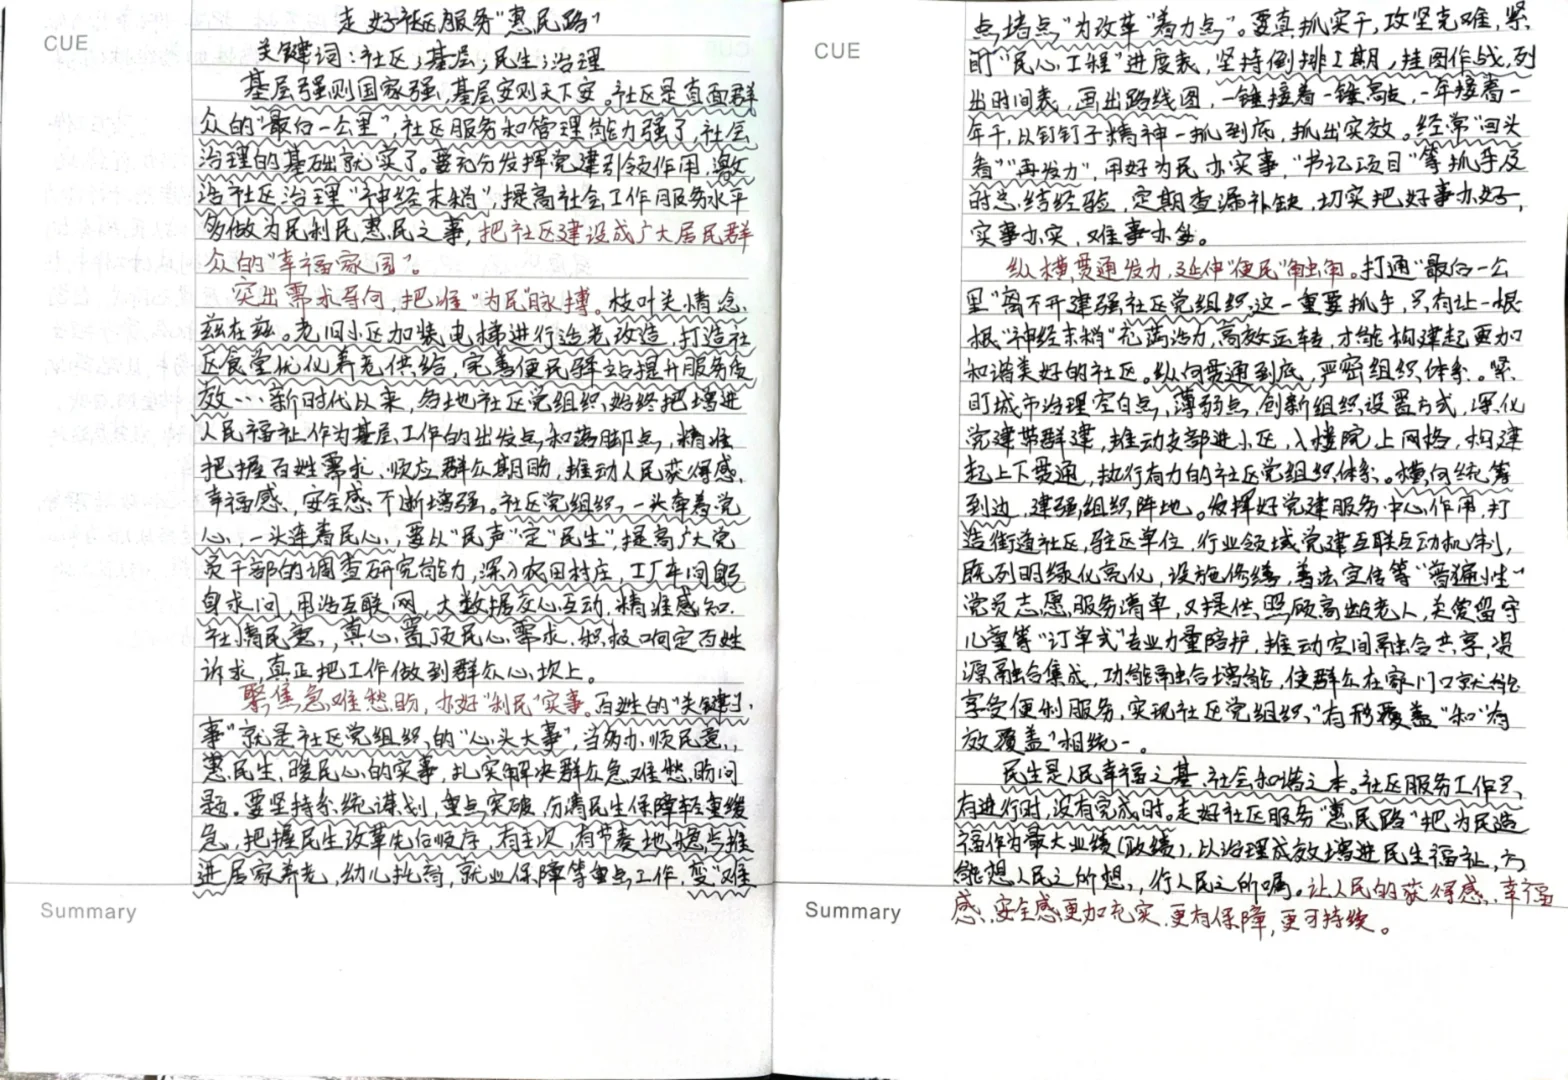 CUE
走好社区服务“惠民路”
关键词：社区；基层；民生；治理
基层强则国家强，基层安则天下安。社区是直面群
众的“最后一公里”，社区服务和管理能力强了，社会
治理的基础就实了。要充分发挥党建引领作用，激
活社区治理“神经末梢”，提高社会工作服务水平
多做为民利民惠民之事，把社区建设成广大居民群
众的“幸福家园”。
突出需求导向，把准“为民”脉搏。枝叶关情念
兹在兹。老旧小区加装电梯进行适老改造，打造社
区食堂优化养老供给，完善便民驿站提升服务质
效…新时代以来，各地社区党组织始终把增进
人民福祉作为基层工作的出发点和落脚点，精准
把握百姓需求、顺应群众期盼，推动人民获得感、
幸福感、安全感不断增强。社区党组织一头牵着党
心，一头连着民心，要从“民声”定“民生”，提高广大党
员干部的调查研究能力，深入农田村庄，工厂车间躬
身求问，用活互联网、大数据交心互动，精准感知
社情民意，真心置顶民心需求，积极响应百姓
诉求，真正把工作做到群众心坎上。
聚焦急难愁盼，办好“利民”实事。百姓的“关键小
事”就是社区党组织的“心头大事”，当多办顺民意、
惠民生、暖民心的实事，扎实解决群众急难愁盼问
题。要坚持系统谋划，重点突破，分清民生保障轻重缓
急，把握民生改革先后顺序，有主次，有节奏地稳步推
进居家养老，幼儿托育，就业保障等重点工作，变“难
Summary
CUE
点堵点”为改革“着力点”。要真抓实干，攻坚克难，紧
盯“民心工程”进度表，坚持倒排工期，挂图作战，列
出时间表，画出路线图，一锤接着一锤敲，一年接着一
年干，以钉钉子精神一抓到底，抓出实效。经常“回头
看”“再发力”，用好为民办实事，“书记项目”等抓手及
时总结经验，定期查漏补缺，切实把好事办好，
实事办实，难事办妥。
纵横贯通发力，延伸“便民”触角。打通“最后一公
里”离不开建强社区党组织这一重要抓手，只有让一根
根“神经末梢”充满活力，高效运转，才能构建起更加
和谐美好的社区。纵向贯通到底，严密组织体系。紧
盯城市治理空白点，薄弱点，创新组织设置方式，深化
党建带群建，推动支部进小区，入楼院上网格，构建
起上下贯通，执行有力的社区党组织体系。横向统筹
到边，建强组织阵地。发挥好党建服务中心作用，打
造街道社区，驻区单位，行业领域党建互联互动机制，
既列明绿化亮化，设施修缮，普法宣传等“普遍性”
党员志愿服务清单，又提供照顾高龄老人，关爱留守
儿童等“订单式”专业力量陪护，推动空间融合共享，资
源融合集成，功能融合增能，使群众在家门口就能
享受便利服务，实现社区党组织“有形覆盖”和“有
效覆盖”相统一。
民生是人民幸福之基、社会和谐之本。社区服务工作只
有进行时，没有完成时。走好社区服务“惠民路”把为民造
福作为最大业绩（政绩），以治理成效增进民生福祉，方
能想人民之所想，行人民之所嘱。让人民的获得感、幸福
感、安全感更加充实、更有保障，更可持续。
Summary